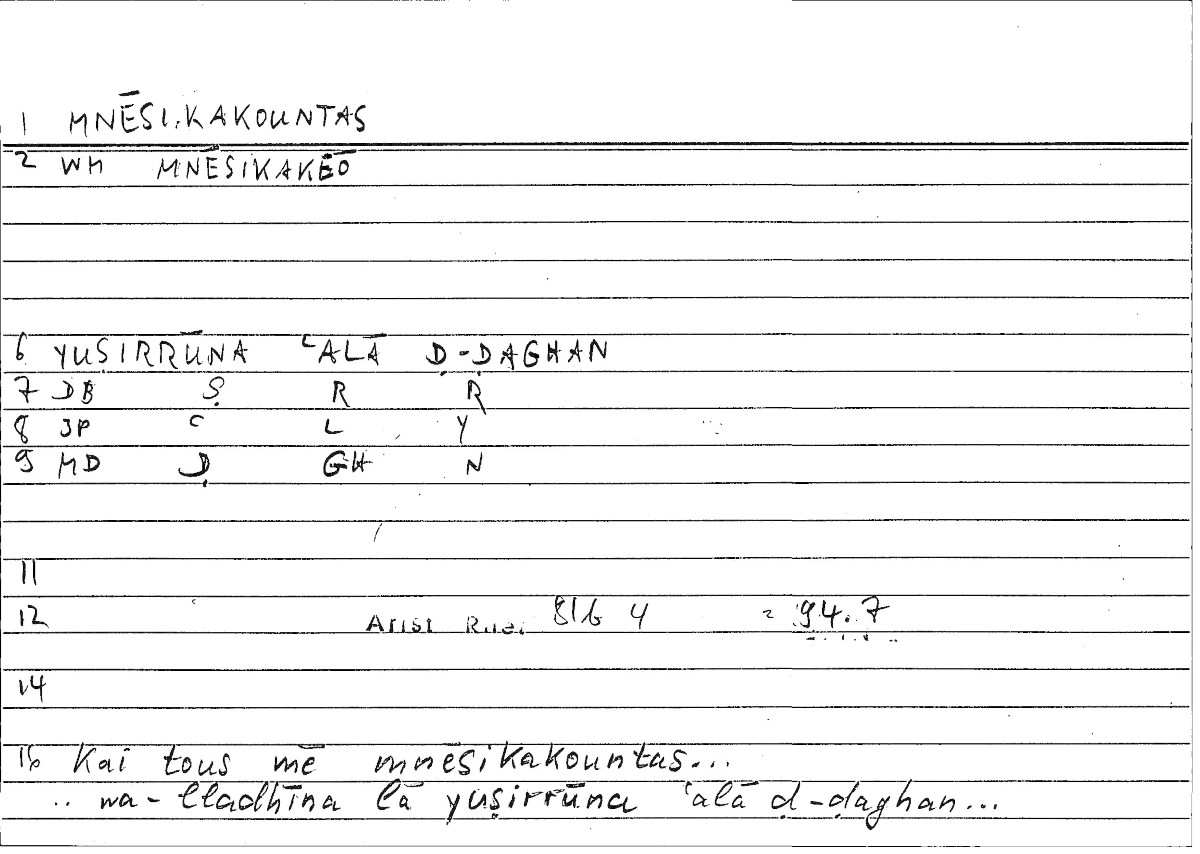 1 MNĒSI.KAKOUNTAS
2 WM MNĒSIKAKEŌ
6 YUṢIRRŪNA ʿALĀ Ḍ-ḌAGHAN
7 DB Ṣ R R
8 JP ʿ L Y
9 MD Ḍ GH N
11
12 Arist Rhet 81b 4 = 94.7
14
16 Kai tous mē mnēsikakountas...
.. wa-lladhīna lā yuṣirrūna ʿalā ḍ-ḍaghan...